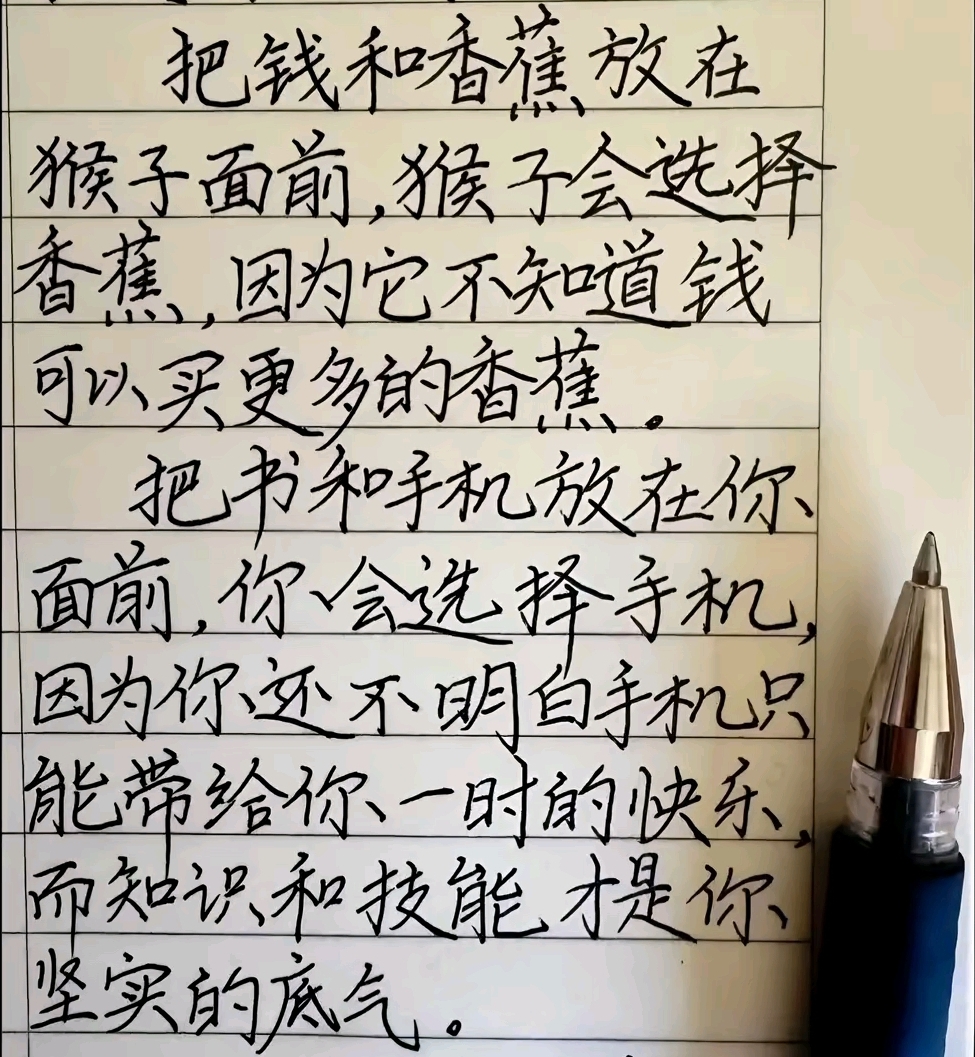 把钱和香蕉放在
猴子面前,猴子会选择
香蕉,因为它不知道钱
可以买更多的香蕉。
把书和手机放在你
面前,你会选择手机,
因为你还不明白手机只
能带给你一时的快乐,
而知识和技能才是你
坚实的底气。